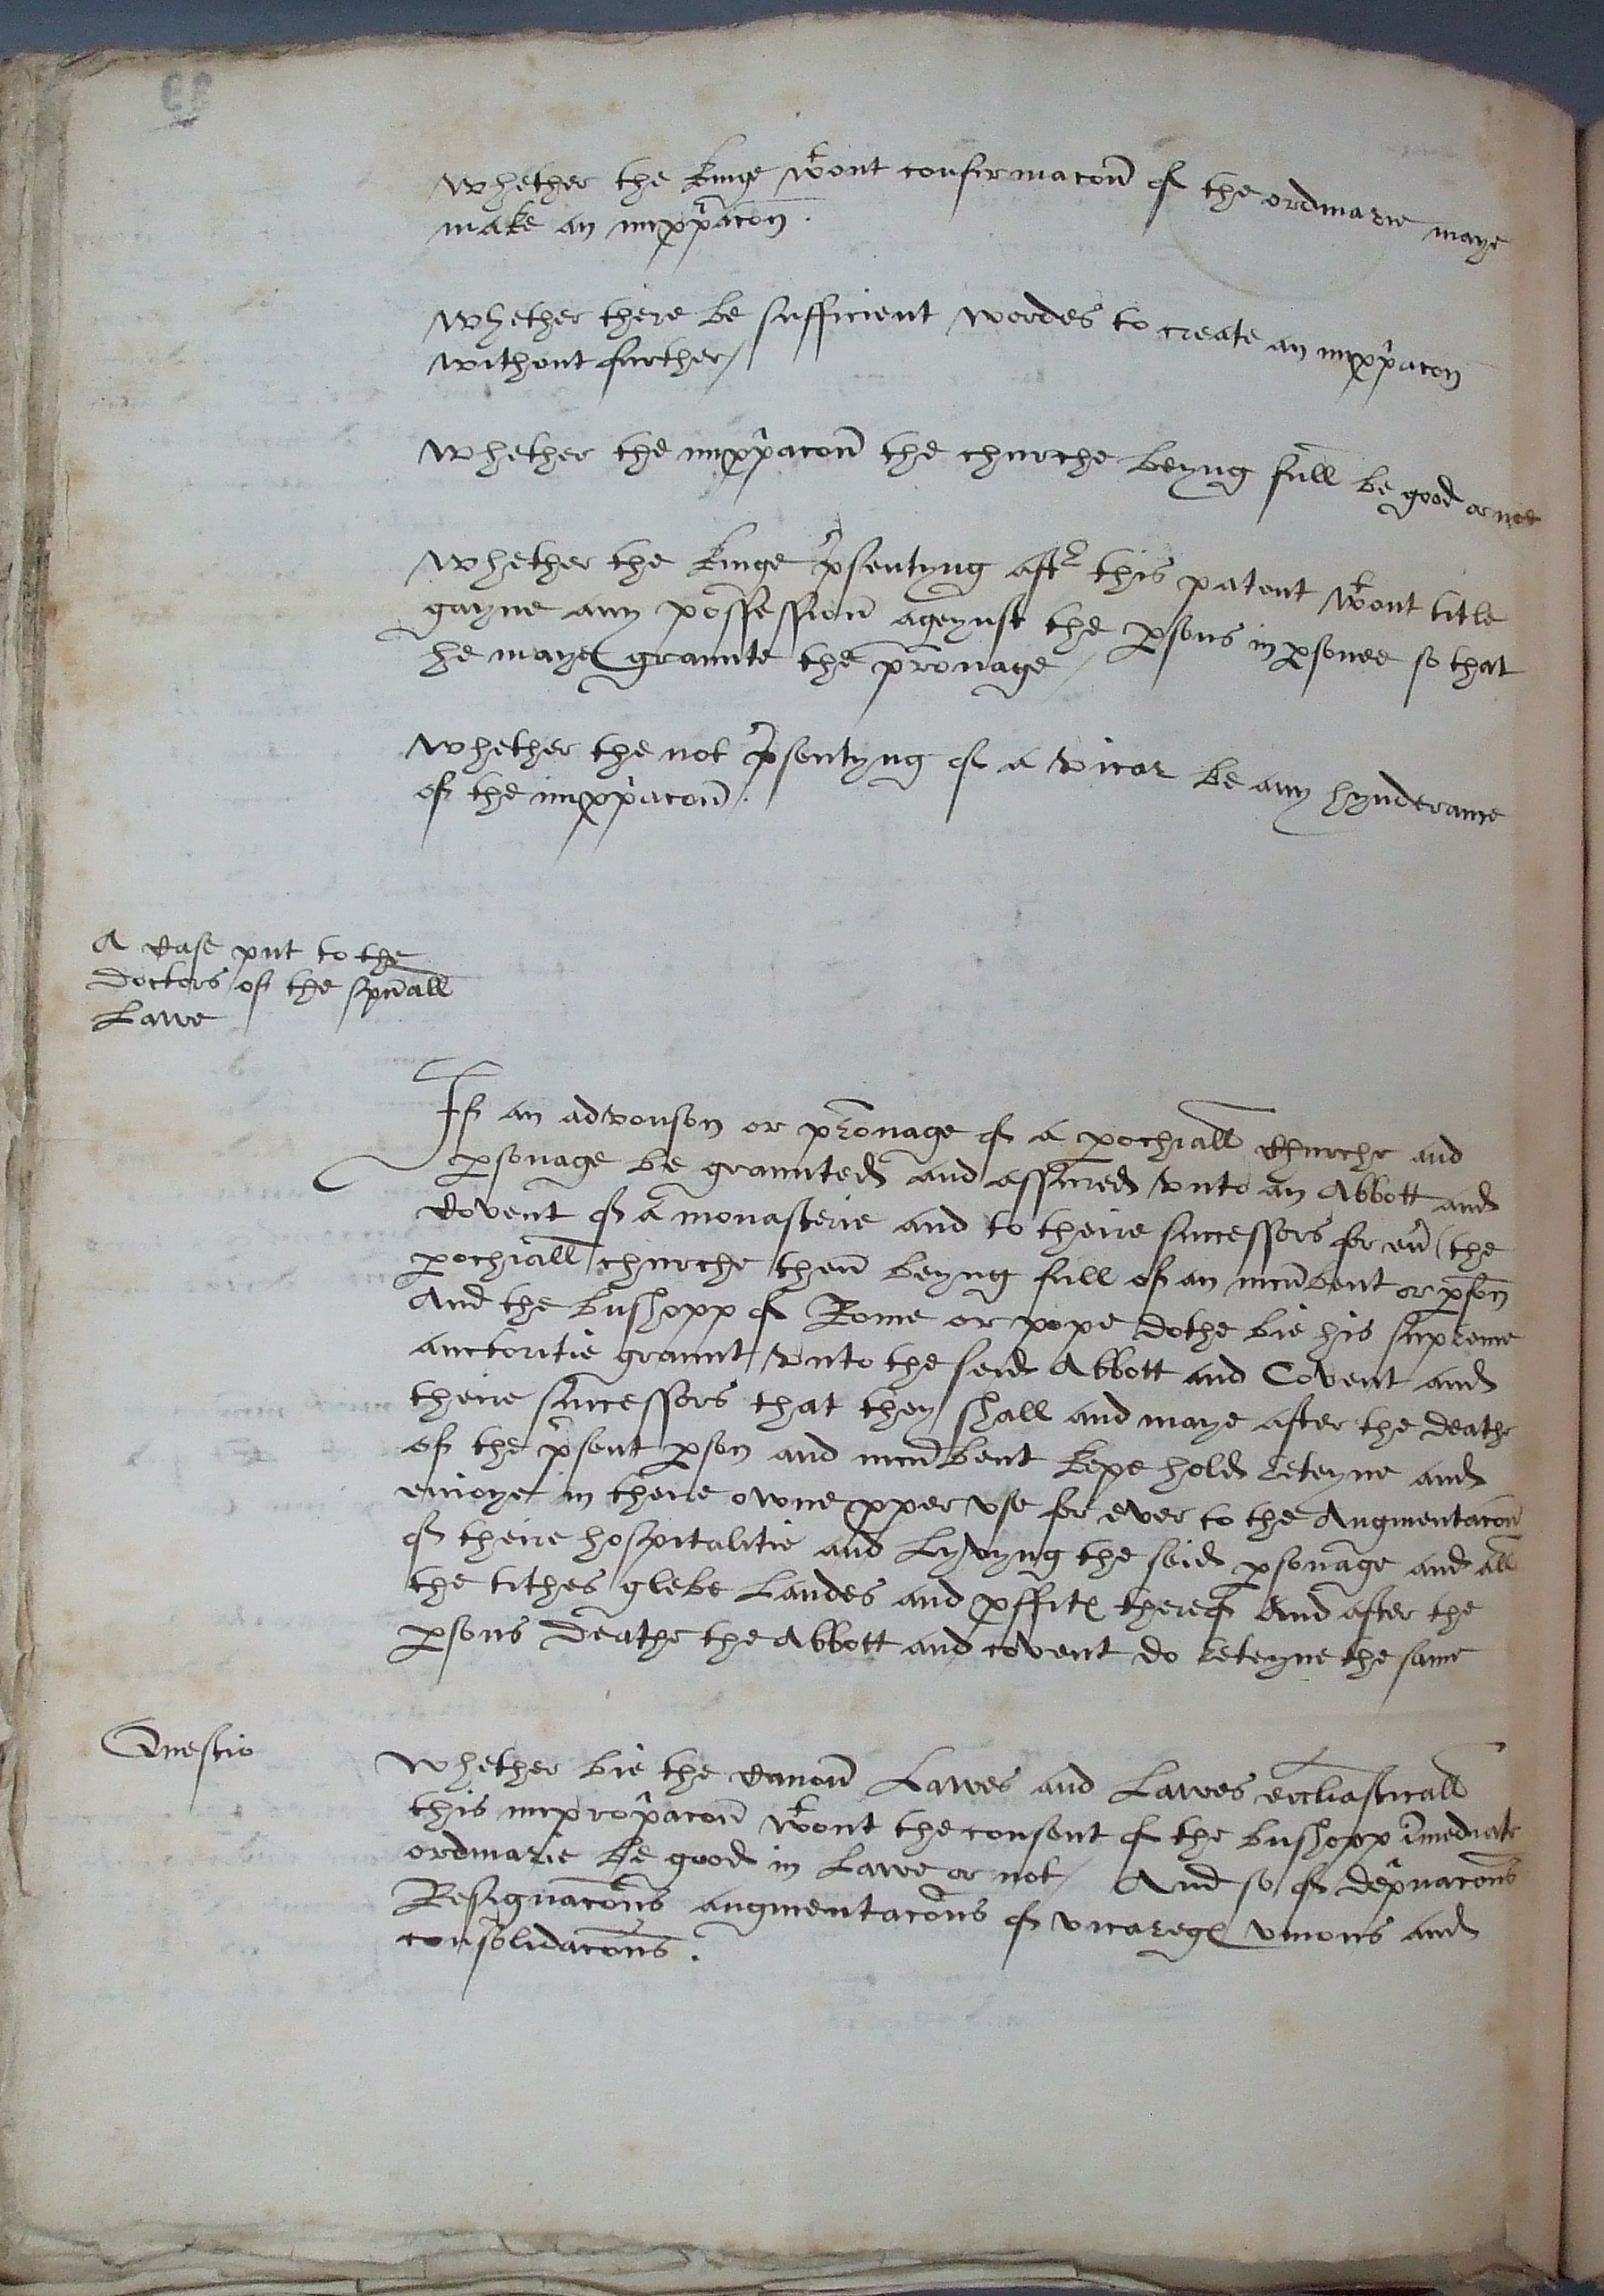 Whether the Kinge wᵗout confirmacon̄ of the ordinarie maye
make an imxp̄racon̄.
Whether there be sufficient wordes to create an impp̄racon
without further/
Whether the impp̄racon̄ the churche beyng full be good or not
Whether the Kinge p̄sentyng aftᵉʳ this patent wᵗout title
gayne any possession̄ ageynst the p̱sons in p̱sonee so that
he maye graunte the p̄ronage/
Whether the not p̄sentyng of a vicar be any hynderance
of the impp̄racon̄.
A case put to the
Doctors of the sp̄uall
Lawe
If an advouson or pr̄onage of a p̱ochiall Churche and
p̱sonage be graunted and assured vnto an Abbott and
Covent of a monasterie and to theire successors for eū (the
p̱ochiall churche then̄ beyng full of an incūbent or p̱son̄
And the busshopp of Rome or pope dothe bie his supreme
auctoritie graunt vnto the seid Abbott and Covent and
theire successors that they shall and maye after the deathe
of the p̄sent p̱son and incūbent kepe hold reteyne and
enioye in theire owne p̱per vse for ever to the Augmentacon̄
of theire hospitalitie and Lyvyng the seid p̱sonage and all
the tithes glebe Landes and p̱ffitꝭ thereof And after the
p̱sons deathe the Abbott and covent do reteyne the same
Questio
Whether bie the Canon̄ Lawes and Lawes eccl̄iasticall
this impropr̄acon̄ wᵗout the consent of the busshopp im̄ediate
ordinarie be good in Lawe or not/ And so of dep̄uacon̄s
Resignacon̄s augmentacon̄s of vicaregꝭ vnions and
consolidacon̄s.